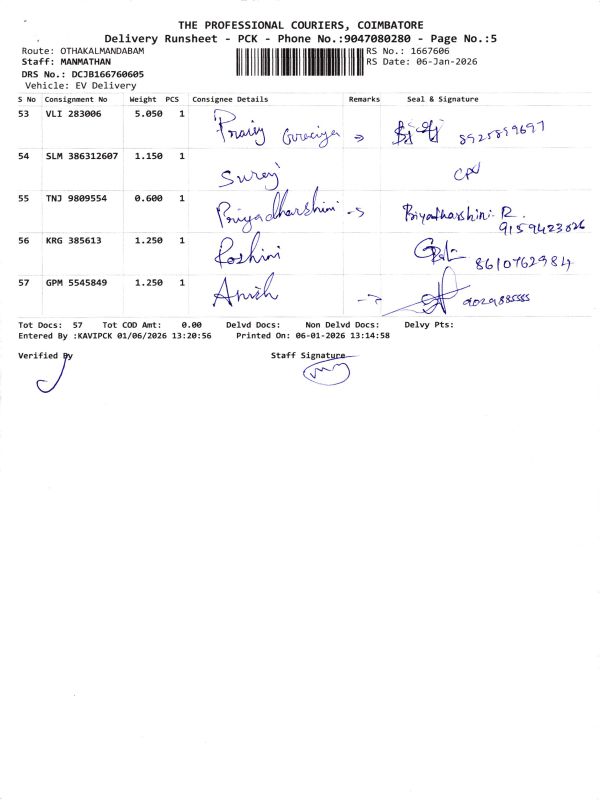 THE PROFESSIONAL COURIERS, COIMBATORE
Delivery Runsheet - PCK - Phone No.:9047080280 - Page No.:5
Route: OTHAKALMANDABAM RS No.: 1667606
Staff: MANMATHAN RS Date: 06-Jan-2026
DRS No.: DCJB166760605
Vehicle: EV Delivery
S No Consignment No Weight PCS Consignee Details Remarks Seal & Signature
53 VLI 283006 5.050 1 8925899697
54 SLM 386312607 1.150 1 Suraj
55 TNJ 9809554 0.600 1 Priyadharshini → Priyadharshini. R
9159423626
56 KRG 385613 1.250 1 Roshini 8610762984
57 GPM 5545849 1.250 1 Anish →
Tot Docs: 57 Tot COD Amt: 0.00 Delvd Docs: Non Delvd Docs: Delvy Pts:
Entered By :KAVIPCK 01/06/2026 13:20:56 Printed On: 06-01-2026 13:14:58
Verified By Staff Signature